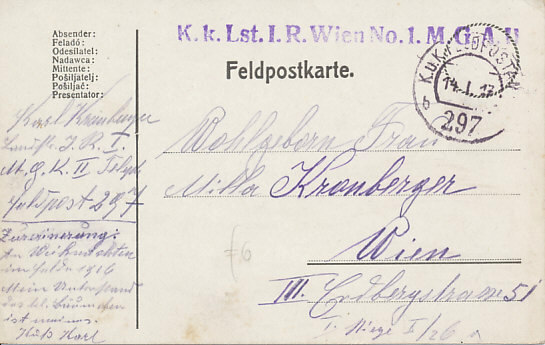 Absender:
Feladó:
Odesílatel:
Nadawca:
Mittente:
Pošiljatelj:
Pošiljač:
Presentator:
K. k. Lst. I. R. Wien No. 1. M.G.A. II
Feldpostkarte.
K.u.K. FELDPOSTAMT
14. I. 17
b
297
Karl Kronberger
I. R. 1.
M. G. K. II
Feldpost 297
Zur Erinnerung:
An Weihnachten
im Felde 1916
Mein Unterstand
ist
Karl
Wohlgeborn Frau
Milla Kronberger
Wien
III. Erdbergstrasse 51
I/26